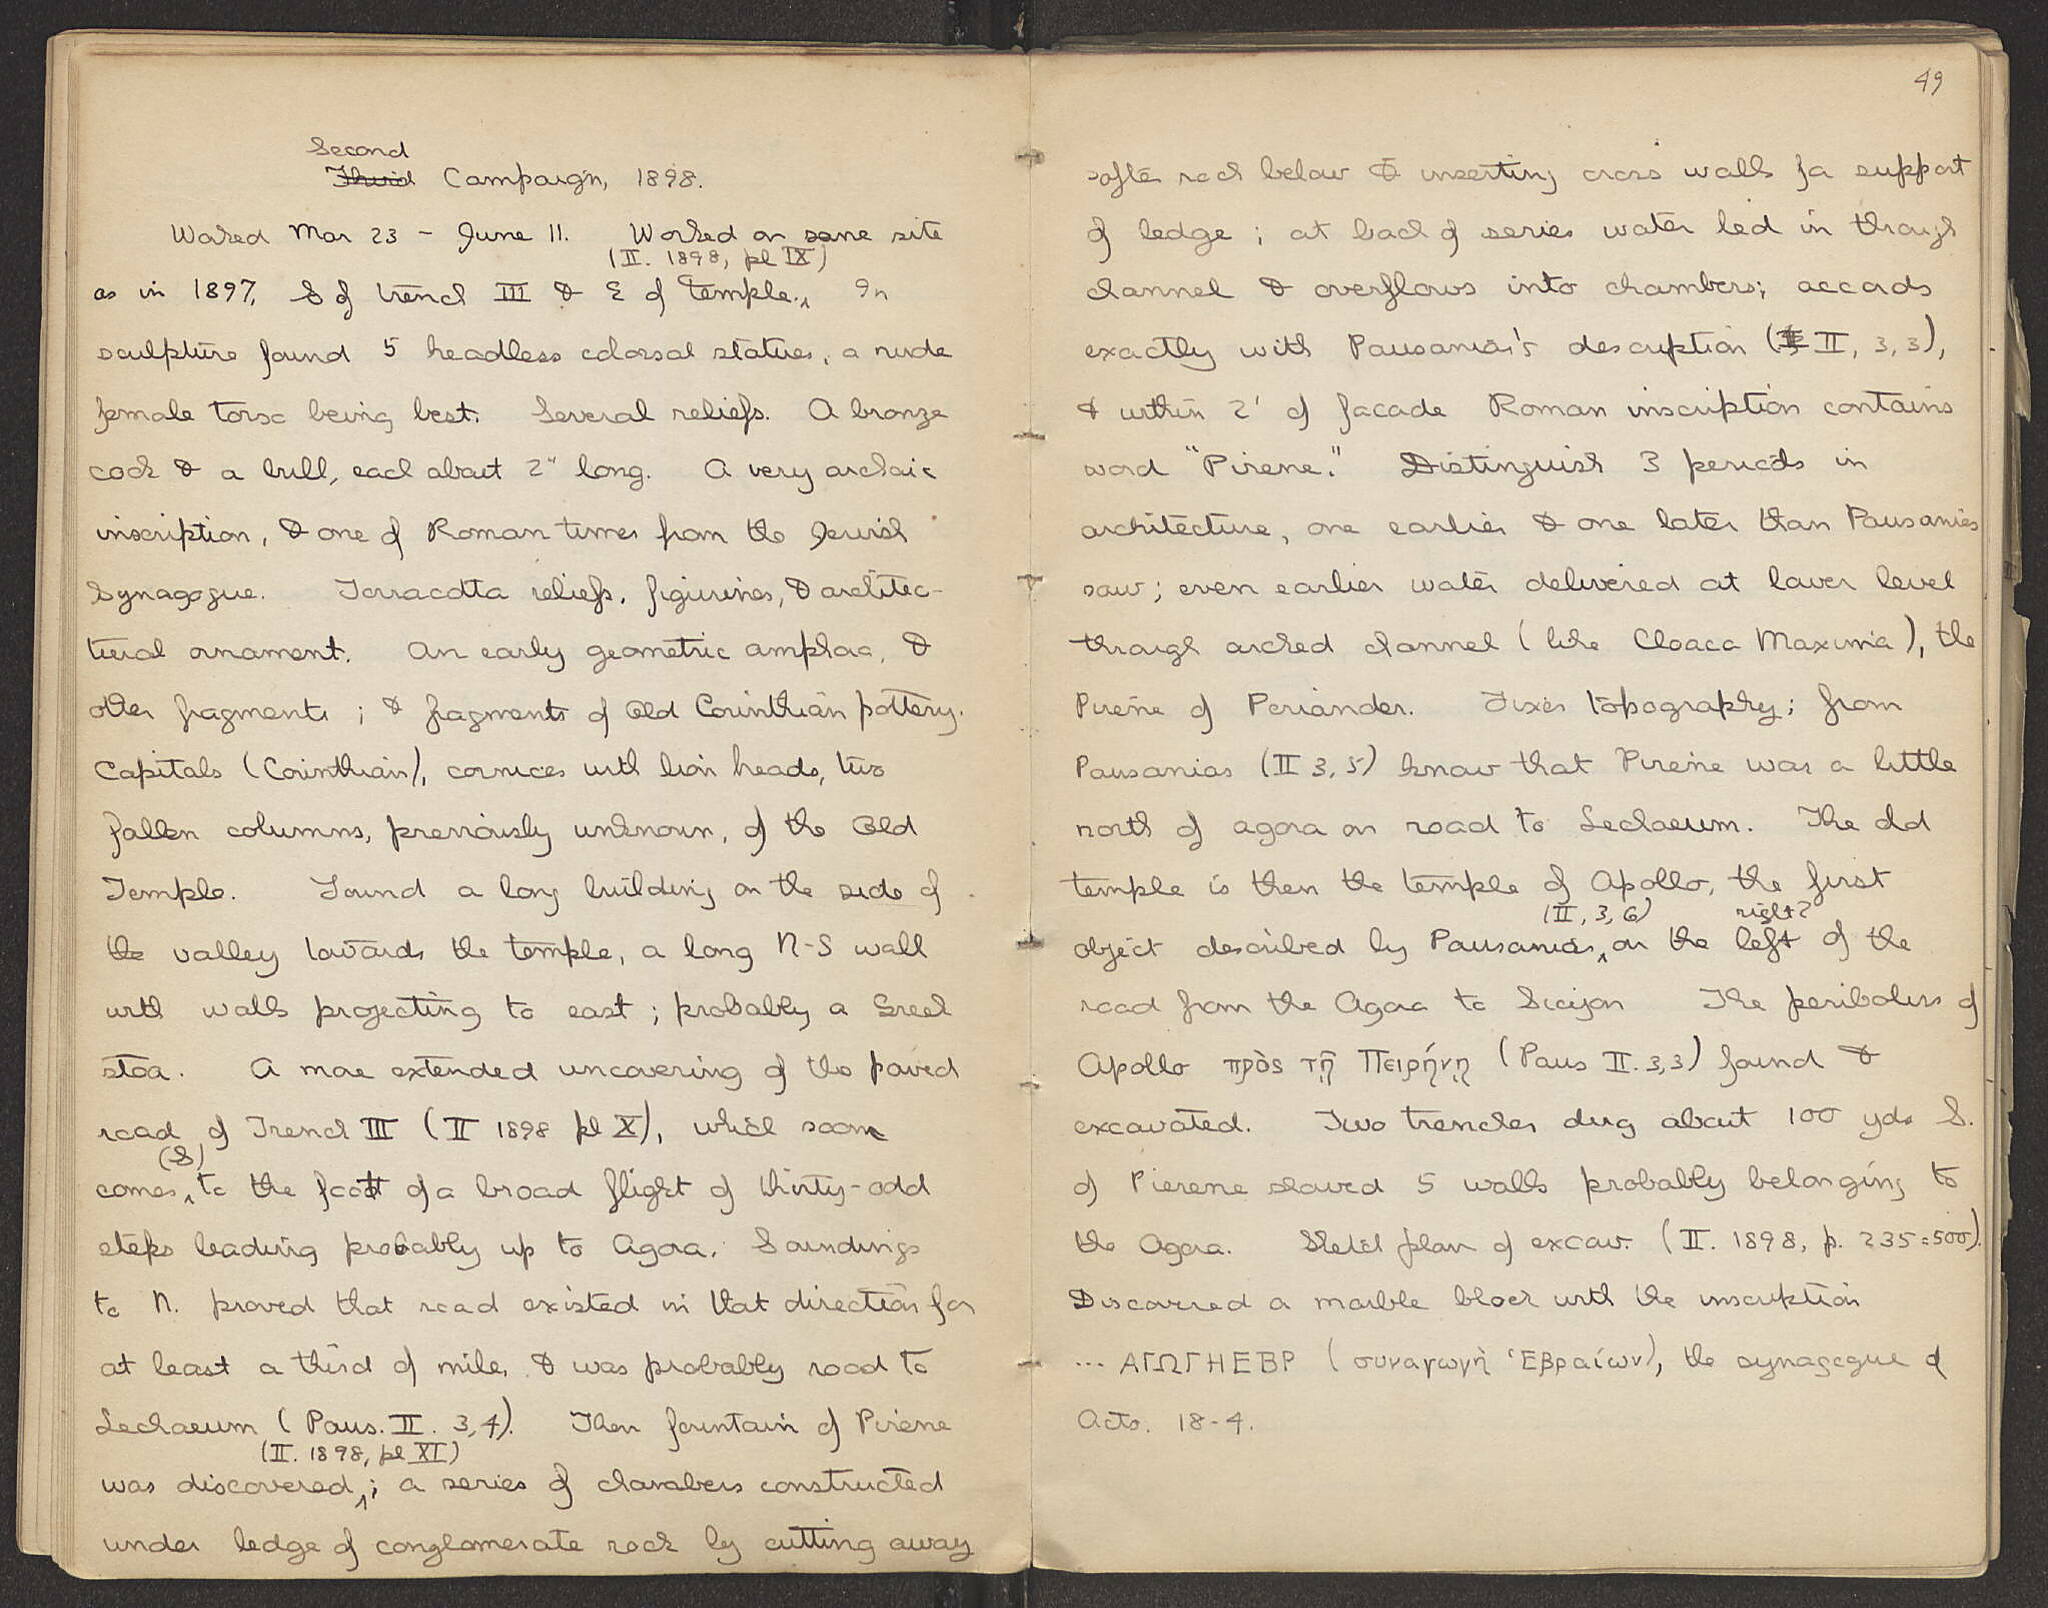 Second
Third Campaign, 1898.
Worked Mar 23 - June 11. Worked on same site
(II. 1898, pl IX)
as in 1897, S of trench III & E of temple. In
sculpture found 5 headless colossal statues, a nude
female torso being best. Several reliefs. A bronze
cock & a bull, each about 2" long. A very archaic
inscription, & one of Roman times from the Jewish
Synagogue. Terracotta reliefs, figurines, & architec-
tural ornament. An early geometric amphora, &
other fragments; & fragments of Old Corinthian pottery.
Capitals (Corinthian), cornices with lion heads, two
fallen columns, previously unknown, of the Old
Temple. Found a long building on the side of
the valley towards the temple, a long N-S wall
with walls projecting to east; probably a Greek
stoa. A more extended uncovering of the paved
road of Trench III (II 1898 pl X), which soon
(S)
comes to the foot of a broad flight of thirty-odd
steps leading probably up to Agora. Soundings
to N. proved that road existed in that direction for
at least a third of mile, & was probably road to
Lechaeum (Paus. II. 3,4). Then fountain of Pirene
(II. 1898, pl XI)
was discovered; a series of chambers constructed
under ledge of conglomerate rock by cutting away
49
softer rock below & inserting cross walls for support
of ledge; at back of series water led in through
channel & overflows into chambers; accords
exactly with Pausanias's description (II, 3, 3),
& within 2' of facade Roman inscription contains
word "Pirene." Distinguish 3 periods in
architecture, one earlier & one later than Pausanias
saw; even earlier water delivered at lower level
through arched channel (like Cloaca Maxima), the
Pirene of Periander. Fixes topography; from
Pausanias (II 3, 5) know that Pirene was a little
north of agora on road to Lechaeum. The old
temple is then the temple of Apollo, the first
(II, 3, 6) right?
object described by Pausanias, on the left of the
road from the Agora to Sicyon The peribolus of
Apollo πρὸς τῇ Πειρήνῃ (Paus II. 3,3) found &
excavated. Two trenches dug about 100 yds S.
of Pierene showed 5 walls probably belonging to
the Agora. Sketch plan of excav. (II. 1898, p. 235=500).
Discovered a marble block with the inscription
... ΑΓΩΓΗΕΒΡ (συναγωγὴ Ἑβραίων), the synagogue of
Acts. 18-4.